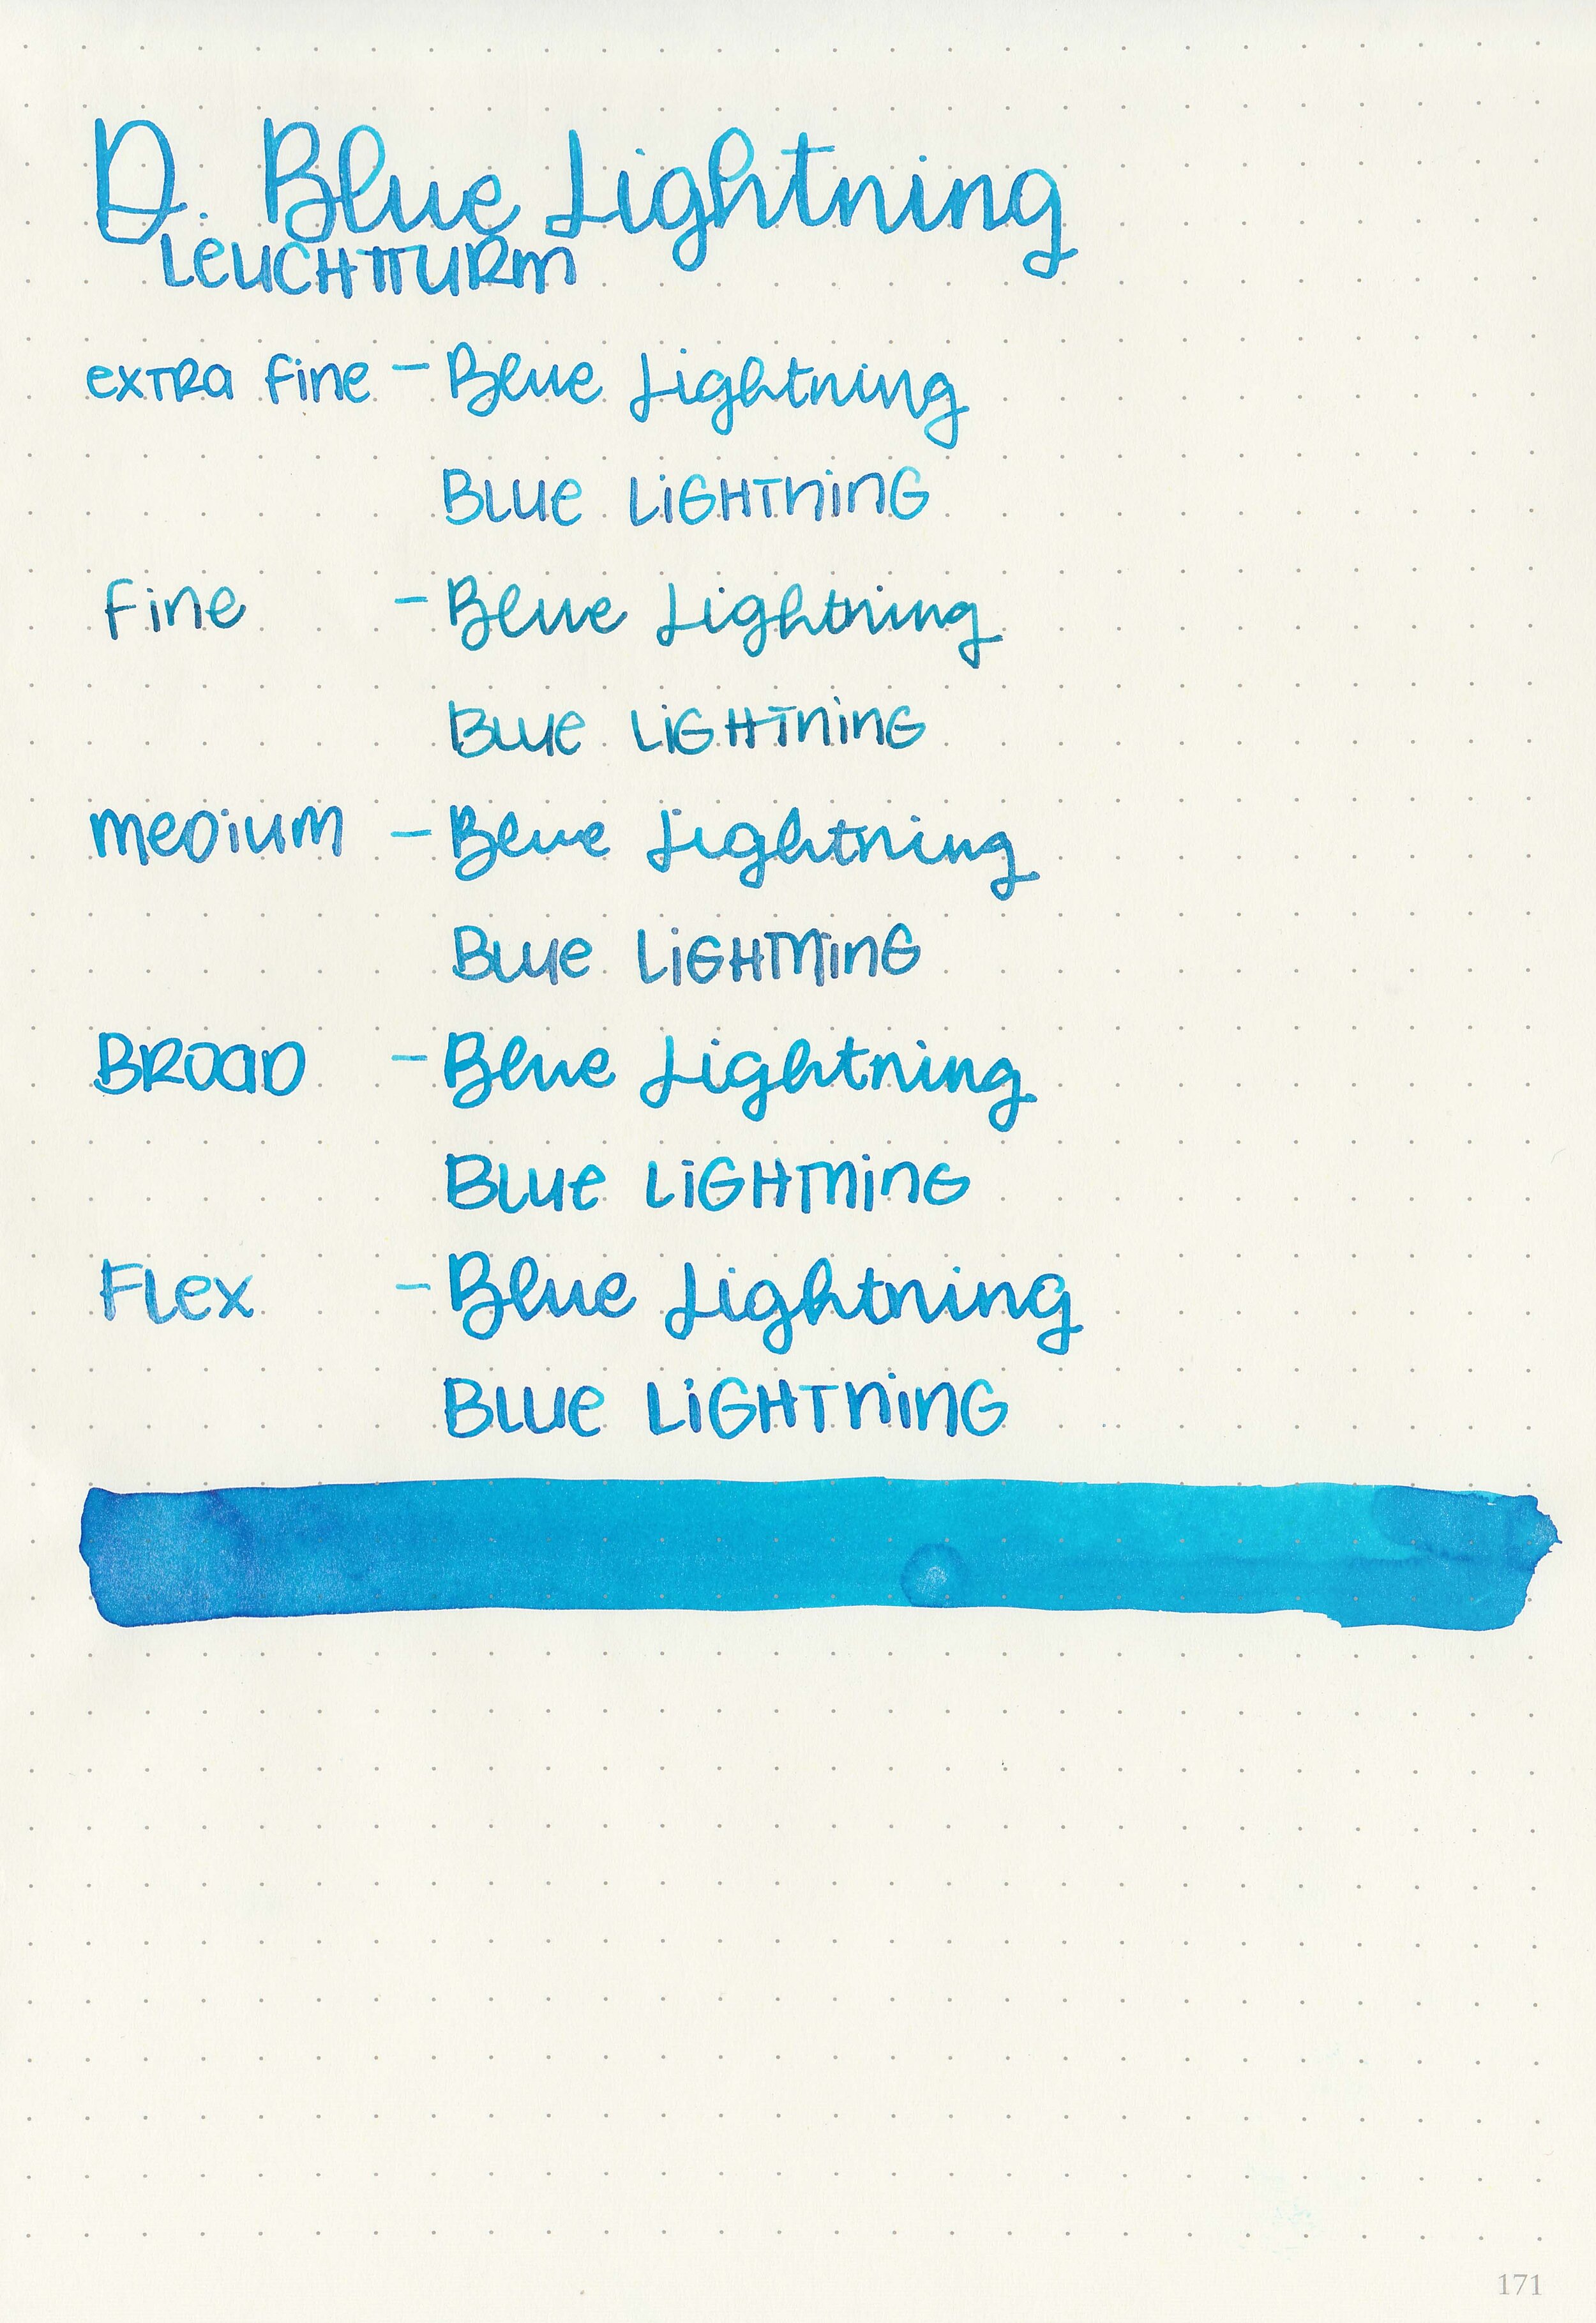 D. Blue Lightning
LEUCHTTURM
EXTRA FINE - Blue Lightning
BLUE LIGHTNING
FINE - Blue Lightning
BLUE LIGHTNING
MEDIUM - Blue Lightning
BLUE LIGHTNING
BROAD - Blue Lightning
BLUE LIGHTNING
FLEX - Blue Lightning
BLUE LIGHTNING
171